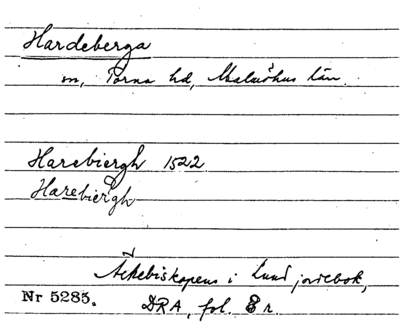 Hardeberga
sn, Torna hd, Malmöhus län.
Harebiergh 1522
Harebiergh
Ärkebiskopens i Lund jordebok,
Nr 5285. DRA, fol. 8 r.